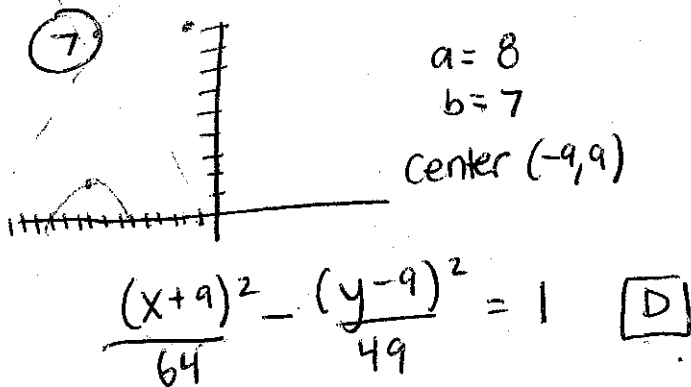 7
a = 8
b = 7
center (-9,9)
(x+9)²/64 - (y-9)²/49 = 1
D